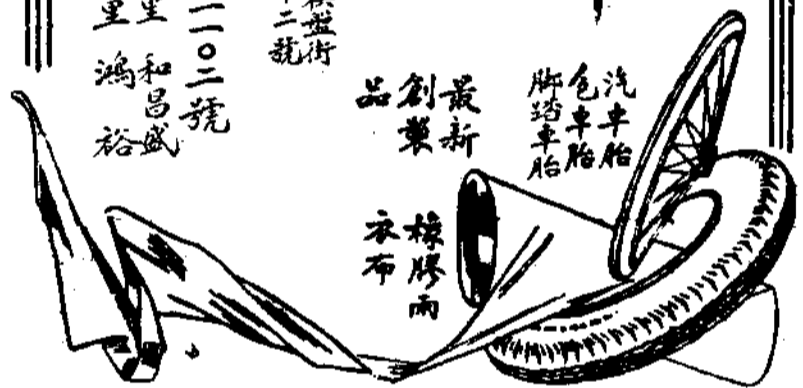 汽車胎
包車胎
脚踏車胎
最新
創製
品
橡膠雨
衣布
盤街
二號
一一〇二號
和昌盛
里 鴻裕